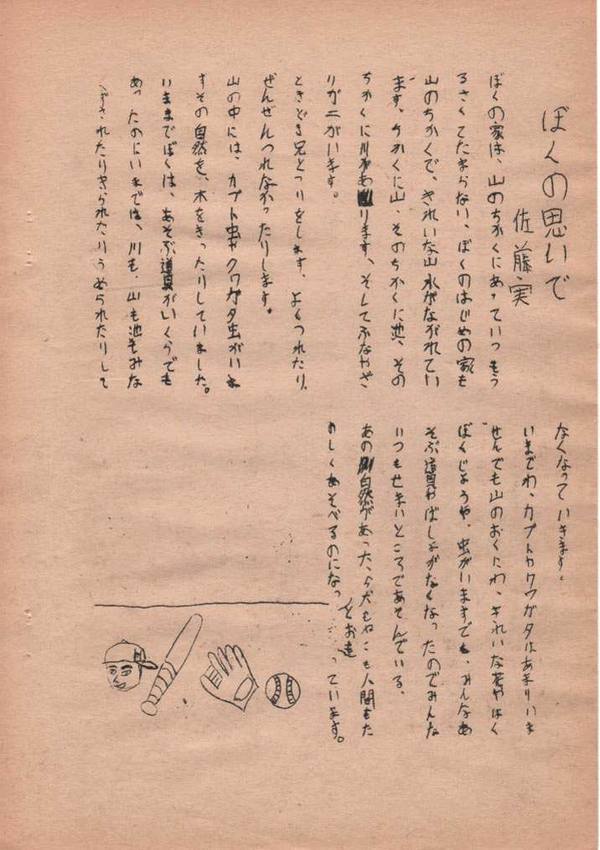 ぼくの思いで
佐藤実
ぼくの家は、山のちかくにあっていつもう
るさくてたまらない、ぼくのはじめの家も
山のちかくで、きれいな山水がながれてい
ます。ちかくに山、そのちかくに池、その
ちかくに川があります、そしてふなやざ
リガニがいます。
ときどき兄とつりをします、よくつれたり、
ぜんぜんつれなかったりします。
山の中には、カブト虫やクワガタ虫がいま
すその自然を、木をきったりしていました。
いままでぼくは、あそぶ道具がいくらでも
あったのにいまでは、川も、山も池もみな
されたりきられたりうめられたりして
なくなっていきます。
いまでわ、カブトカクワガタはあまりいま
せんでも山のおくにわ、きれいな花やはく
ぼくじょうや、虫がいますでも、みんなあ
そぶ道具やばしょがなくなったのでみんな
いつもせまいところであそんでいる、
あの自然があった、ら犬もねこも人間もた
のしくあそべるのになっ
とおも
っています。